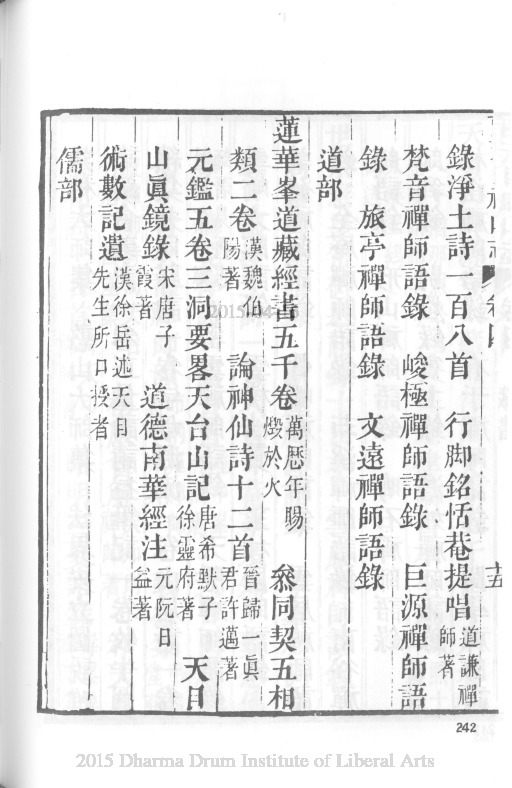 錄淨土詩一百八首　行脚銘恬巷提唱道謙禪師著
梵音禪師語錄　峻極禪師語錄　巨源禪師語
錄　旅亭禪師語錄　文遠禪師語錄
道部
蓮華峯道藏經書五千卷萬厯年賜燬於火　叅同契五相
類二卷漢魏伯陽著　論神仙詩十二首晉歸一眞君許邁著
元鑑五卷三洞要畧天台山記唐希默子徐靈府著　天目
山眞鏡錄宋唐子霞著　道德南華經注元阮日益著
術數記遺漢徐岳述天目先生所口授者
儒部
242
2015 Dharma Drum Institute of Liberal Arts